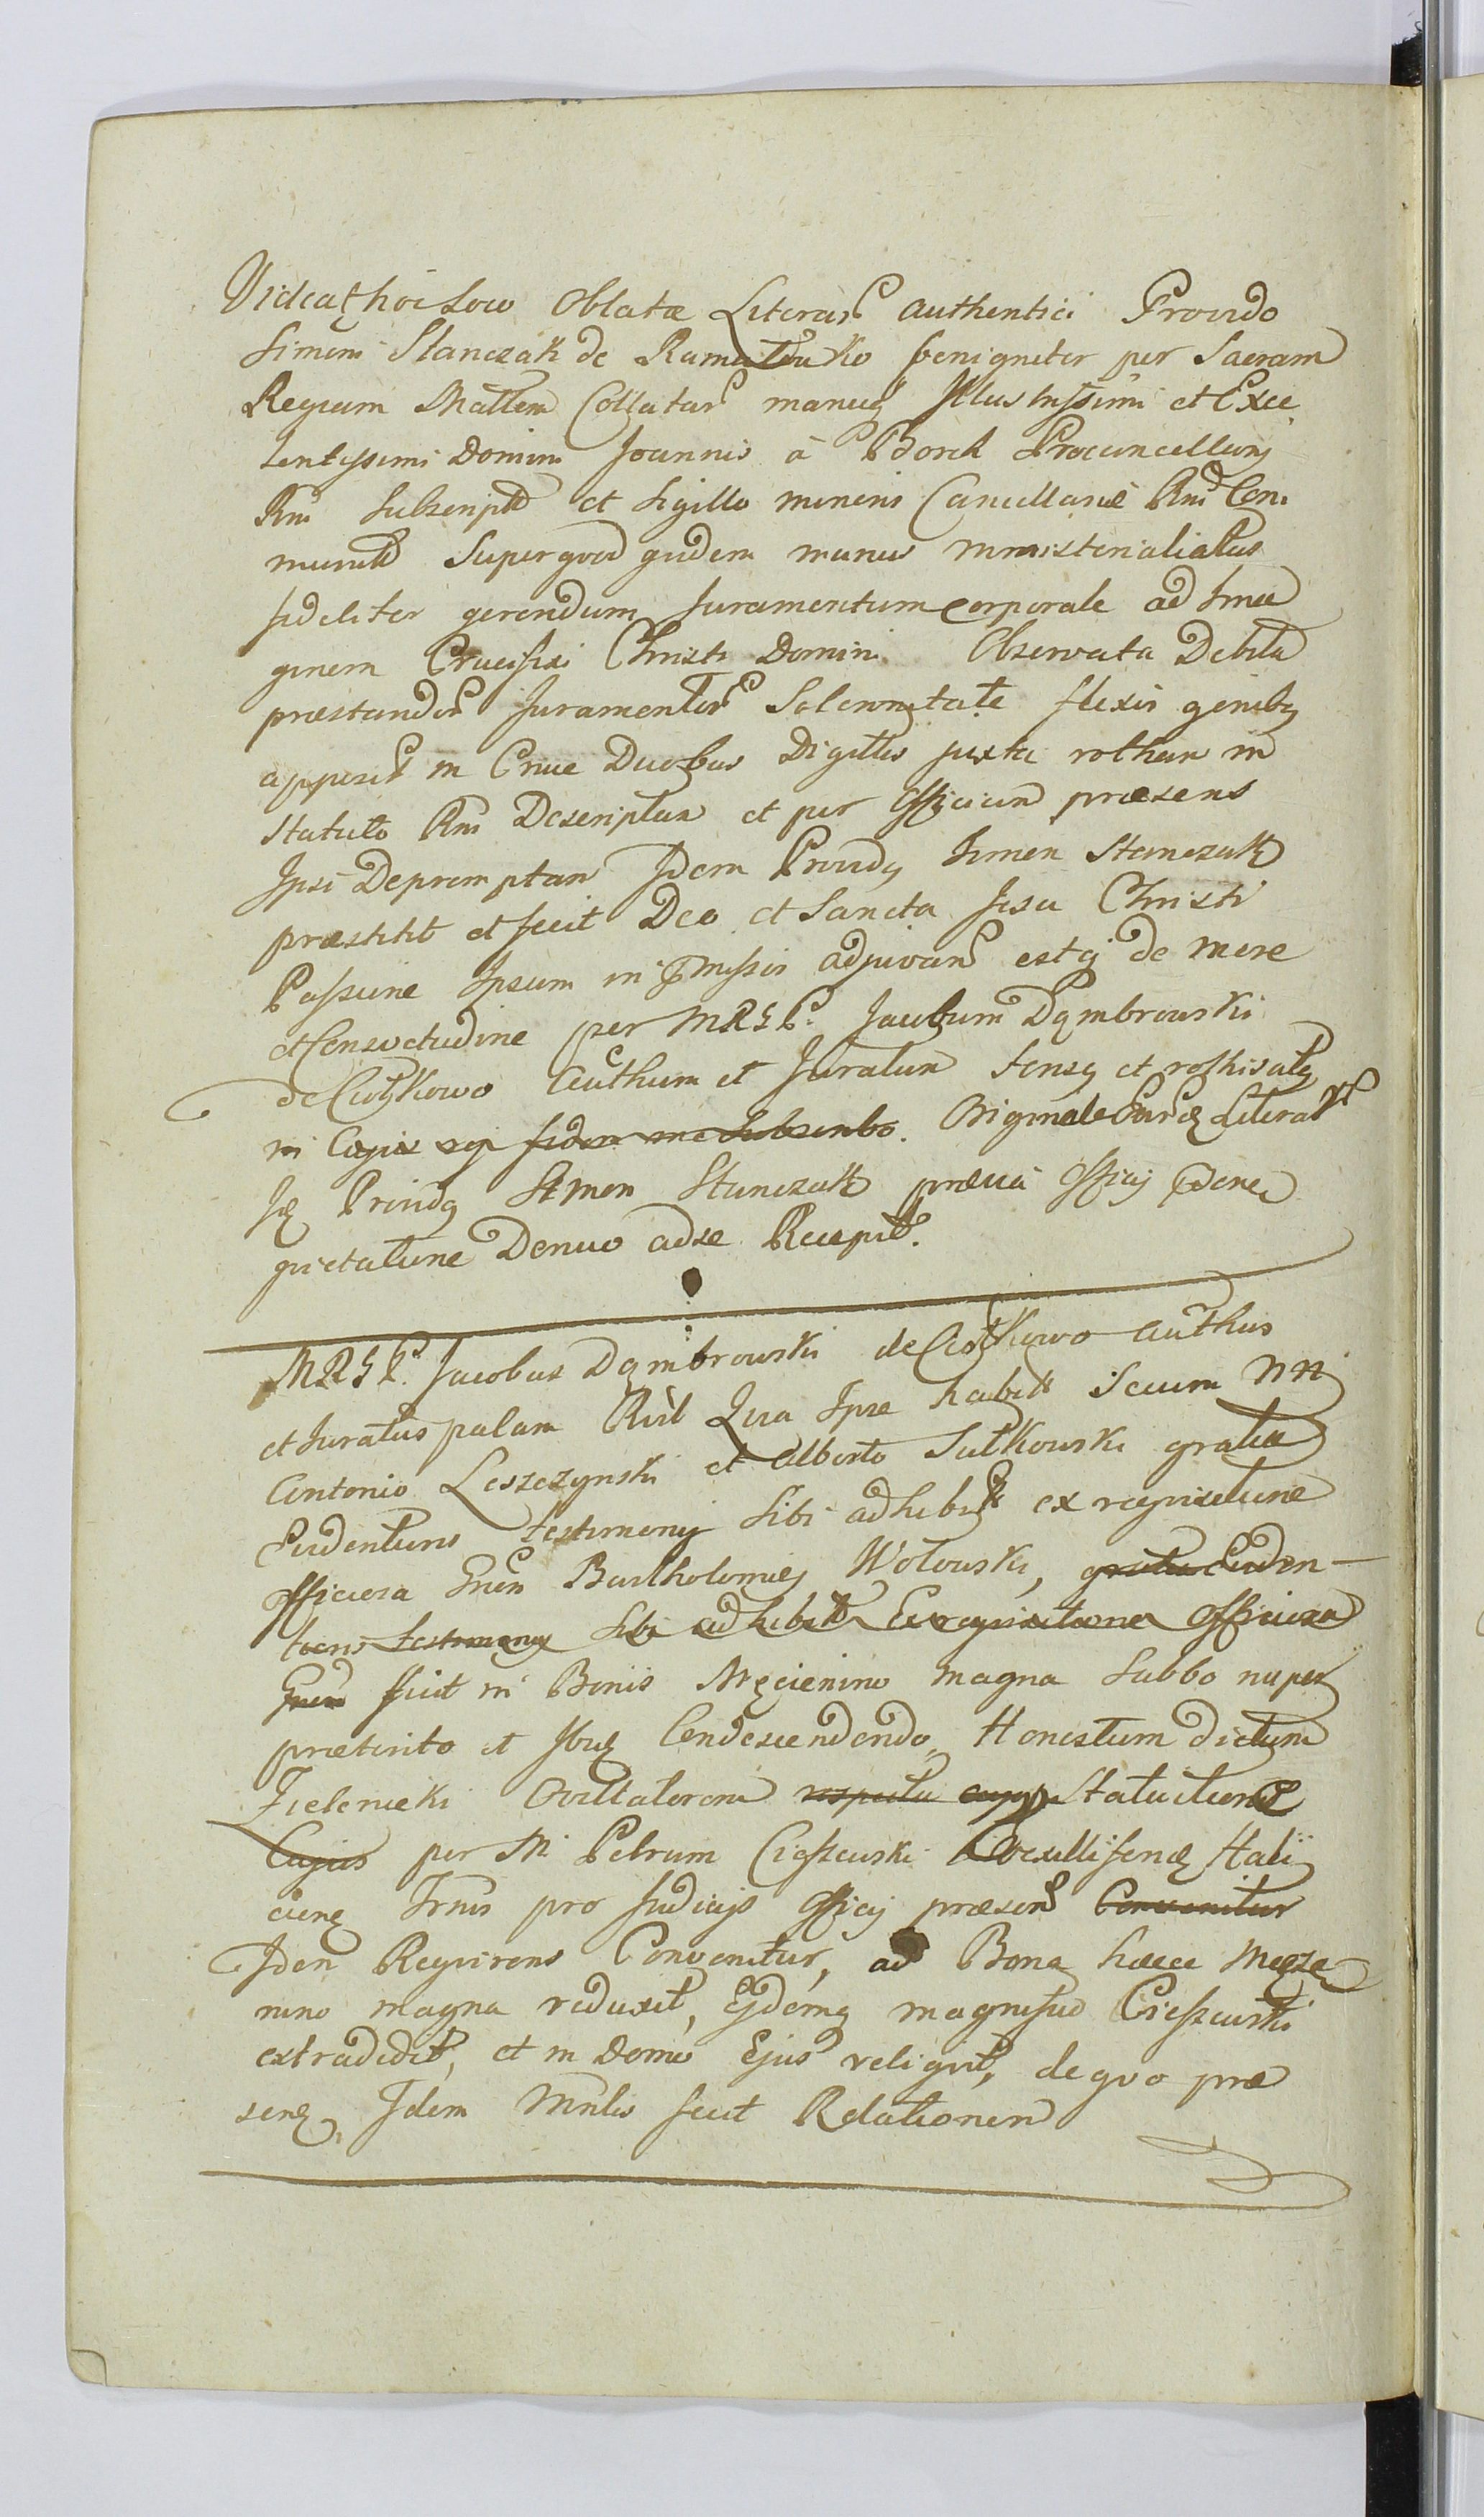 Videatt hoc Loco Oblatæ Literar authentici Provido
Simoni Stanczak de benigniter per Sacram
Regiam Mattem Collatar manuq Illustrissimi et Exce
lentissimi Domini Joannis à Borch Procancellarij
Rni Subscript et Sigillo minoris Cancellariæ Rni Com
munit Super quod quidem munus ministerialatus
fideliter gerendum Juramentum corporale ad Ima
ginem Crucifixi Christi Domini Observata Debita
præstandor Juramentor Solennitate flexis genibq
apposit in Cruce Duobus Digitis juxta rotham in
Statuto Rni Descriptam et per Officium præsens
Ipsi Depromptam Idem Providq Simon Stanczak
præstitit et fecit Deo et Sancta Jesu Christi
Passione Ipsum in pmissis adjuvan estq de more
et Consvetudine per MRGP. Jacobum Dąmbrowski
de authum et Juratum Tonsq et rothisatq
in Cujus rei fidem me Subscribo. Originale Literar
Iq Providq Simon Stanczak prævia Officij
quietatione Denuo ad se Recepit.
MRGP. Jacobus Dąmbrowski de authus
et Juratus palam Rlt Qua Ipse habitt Secum NN
Antonio Leszczynski et Alberto Sutkowski gratia
Evidentioris testimonij Sibi adhibitt ex requisitione
officiosa Gnen Bartholomej Wołowski, gratia Eviden-
tioris testimonij Sibi adhibitt Ex requisitione Officiosa
Gnen fuit in Bonis Męcienino magna Sabbo nuper
præterito et Ibiq Condescendendo, Honestum dictum
Zielenieki Statuitionė
Cujus per M Petrum Cieszewski Vexilliferid Hali
cienq Trnis pro Judicijs Officij præsen Convenitur
Iden Requirens Convenitur, ad Bona hæcce Męcze
nino magna reduxit, Ejdemq magnifico Cieszewski
extradidit, et in Domo Ejus reliquit, de quo præ
senq, Idem Mnlis fecit Relationem